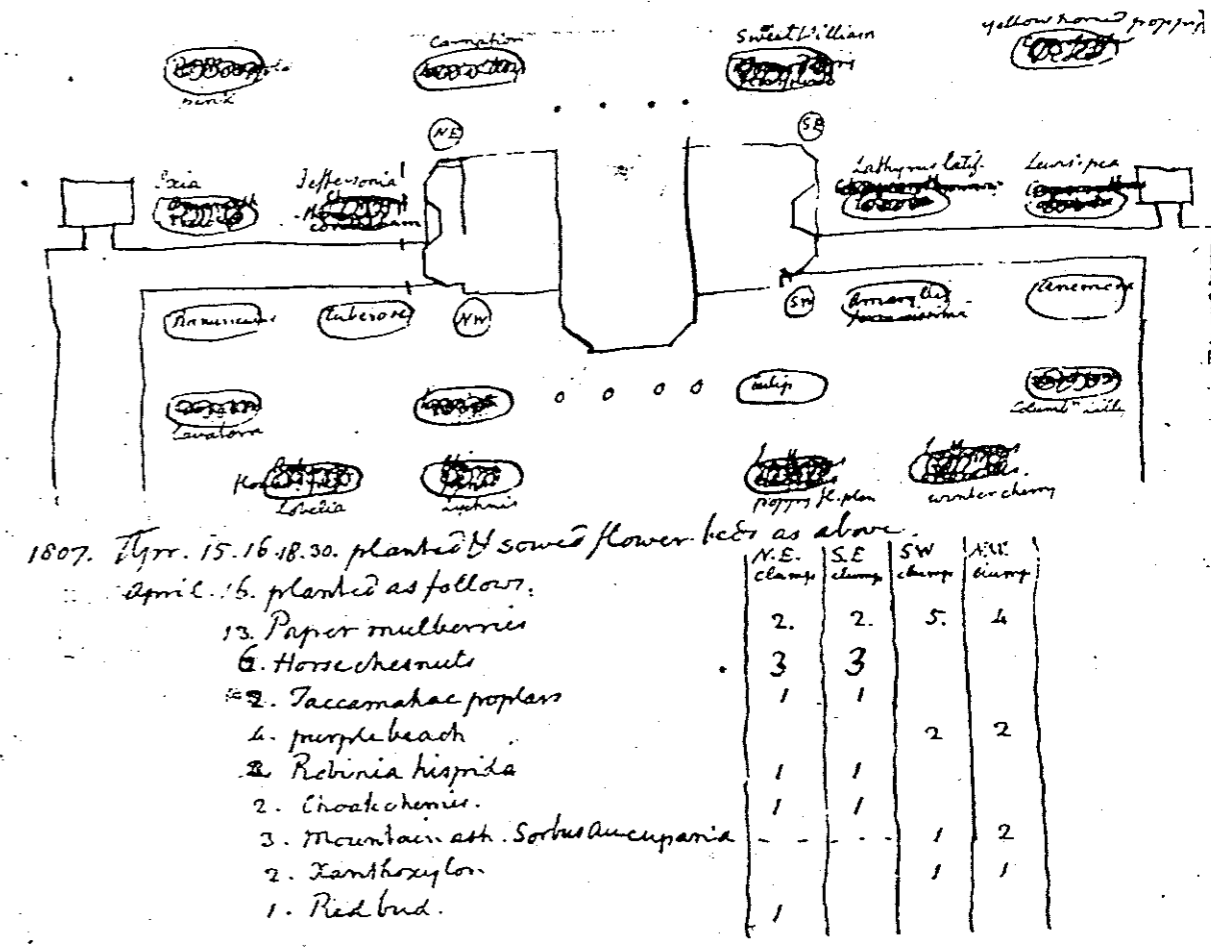 Carnation
Sweet William
yellow horned poppy
pink
NE
SE
Ixia
Jeffersonia
Lathyrus latif.
Lewis's pea
Ranunculus
tuberose
NW
SW
Amaryllis
Anemone
tulip
Lavatera
Columbn lilly
Lobelia
Lychnis
poppy fl. plen
winter cherry
1807. Apr. 15. 16. 18. 30. planted & sowed flower beds as above.
April. 16. planted as follows.
N.E. clump S.E clump SW clump N.W. clump
13. Paper mulberries 2. 2. 5. 4
6. Horse chesnuts 3 3
2. Taccamahac poplars 1 1
4. purple beach 2 2
2. Robinia hispida 1 1
2. Choak cherries. 1 1
3. Mountain ash. Sorbus Aucuparia 1 2
2. Xanthoxylon. 1 1
1. Red bud. 1